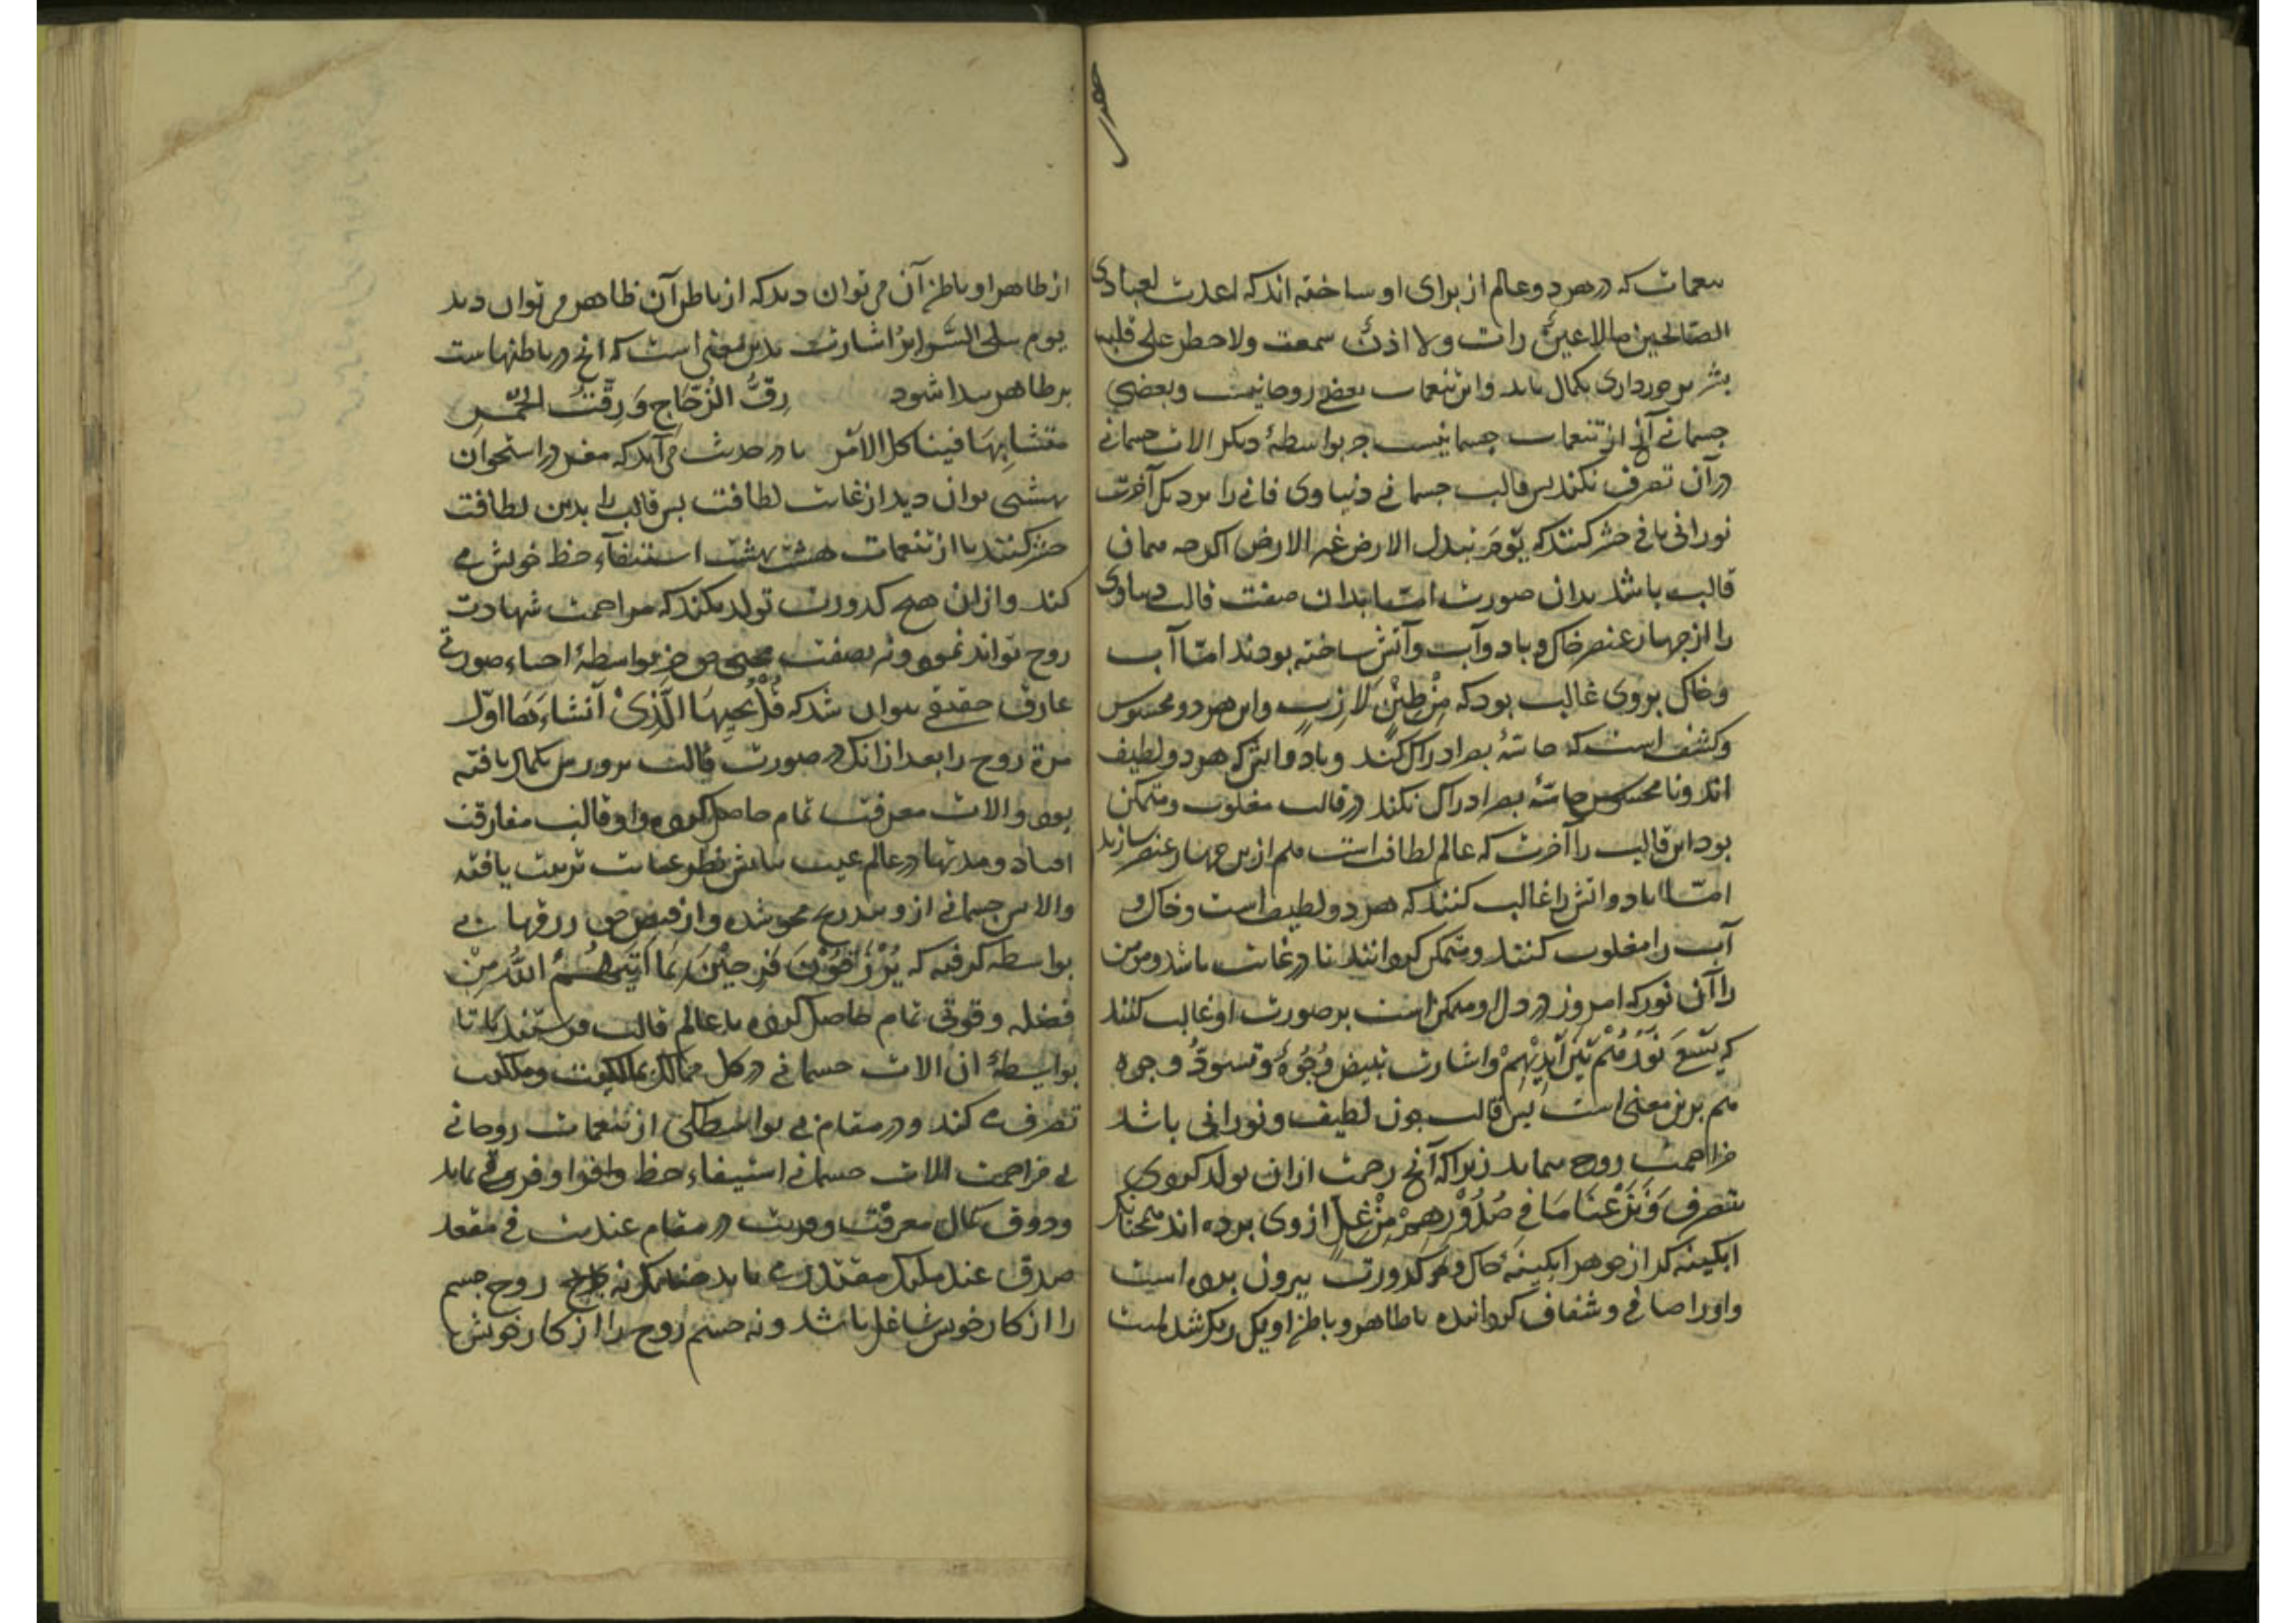 تنعمات که در هر دو عالم از برای او ساخته اند که اعدت لعبادی
الصالحین مالا عین رات ولا اذن سمعت ولا خطر علی قلب
بشر برخورداری بکمال یابد واین تنعمات بعضی روحانیست وبعضی
جسمانی آنچ از تنعمات جسمانیست جز بواسطهٔ دیکر الات جسمانی
در آن تصرف نکند پس قالب جسمانی دنیاوی فانی را برد یکر آخرت
نورانی باقی حشر کنند که یَوْمَ تبدل الارض غیر الارض اکرچه همان
قالب باشد بدان صورت امّا بدان صفت قالب دنیاوی
را از چهار عنصر خاک و باد وآب وآتش ساخته بودند امّا آب
وخاک بروی غالب بود که مِنْ طِیْنٍ لَازِبٍ واین هر دو محسوس
وکثیف است که حاسّهٔ بصر ادراک کند وباد واتش که هر دو لطیف
اند ونامحسوس حاسّهٔ بصر ادراک نکند در قالب مغلوب ومتمکن
بود این قالب را آخرت که عالم لطافت است هم ازین چهار عنصر سازند
امّا باد واتش را غالب کنند که هر دو لطیف است وخاک و
آب را مغلوب کنند ومتمکن کردانند تا در غایت باشد ومومن
را آن نور که امروز در دل او متمکن است بر صورت او غالب کنند
که یَسْعَی نُوْرُهُمْ بَیْنَ اَیْدِیْهِمْ واشارت تبیض وُجُوْهٌ وَتسودُّ وجوه
هم برین معنی است پس قالب چون لطیف ونورانی باشد
مزاحمت روح ننماید زیرا که آنچ زحمت ازان تولد کردی
بتصرف وَنَزَعْنَا مَا فِی صُدُوْرِهِمْ مِنْ غِلٍّ از وی برده اند همچنانکه
ابکینه کر از جوهر ابکینه خاک و کدورت بیرون برده است
واورا صافی وشفاف کردانیده تا ظاهر وباطن او یکرنک شده است
از ظاهر او باطن آن می توان دید که از باطن آن ظاهر می توان دید
یوم تبلی السَّرایرُ اشارت بدین معنی است که انچ در باطنهاست
بر ظاهر پیدا شود رقَّ الزُّجَاج وَرِقَّتْ الْخَمْر
متشابِهَا فیشاکل الاَمْر تا در حدیث می آید که مغز در استخوان
بهشتی توان دید از غایت لطافت پس قالب را بدین لطافت
حشر کنند تا از تنعمات هشت بهشت استیفآء حظ خویش می
کند وازان هیچ کدورت تولد نکند که مزاحمت شهادت
روح تواند نمود ونه بصفت محیی حق جز بواسطهٔ احیاء صورتی
عارف حقیقی نتوان شد که قُلْ یُحیِیْهَا الَّذِیْ اَنْشَاءَهَا اوّل
مرة روح را بعد از انک در صورت قالب پرورش بکمال یافته
بود والات معرفت تمام حاصل کرده واو قالب مفارقت
افتاد ومدتها در عالم غیب بتابش نظر عنایت تربیت یافته
والایش جسمانی از وبتدریج محو شده واز فیض حق رزقها بی
بواسطه کرفته که یُرْزَقُوْنَ فَرِحِیْنَ بِمَا اَتَیهُمُ اللهُ مِنْ
فضله وقوتی تمام حاصل کرده با عالم قالب فرستند تا
بواسطهٔ ان الات جسمانی در کل ممالک ملکیت وملکوت
تصرف می کند ودر مقام بی بواسطکی از تنعمات روحانی
بی مزاحمت الات جسمانی استیفاء حظ وافر واوفر می نماید
وذوق کمال معرفت وقربت در مقام عندیت فی مقعد
صدق عند ملیک مقتدر می یابد چنانکه نه روح جسم
را از کار خویش شاغل باشد ونه جسم روح را از کار خویش